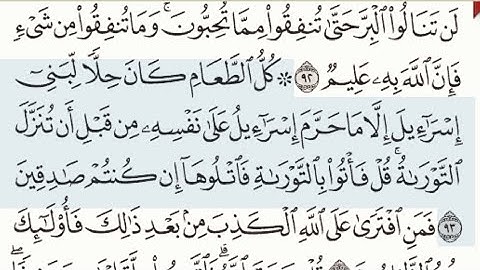 لَن تَنَالُوا۟ ٱلْبِرَّ حَتَّىٰ تُنفِقُوا۟ مِمَّا تُحِبُّونَ ۚ وَمَا تُنفِقُوا۟ مِن شَىْءٍ
فَإِنَّ ٱللَّهَ بِهِۦ عَلِيمٌ ٩٢ ۞ كُلُّ ٱلطَّعَامِ كَانَ حِلًّا لِّبَنِىٓ
إِسْرَٰٓءِيلَ إِلَّا مَا حَرَّمَ إِسْرَٰٓءِيلُ عَلَىٰ نَفْسِهِۦ مِن قَبْلِ أَن تُنَزَّلَ
ٱلتَّوْرَىٰةُ ۗ قُلْ فَأْتُوا۟ بِٱلتَّوْرَىٰةِ فَٱتْلُوهَآ إِن كُنتُمْ صَٰدِقِينَ
٩٣ فَمَنِ ٱفْتَرَىٰ عَلَى ٱللَّهِ ٱلْكَذِبَ مِنۢ بَعْدِ ذَٰلِكَ فَأُو۟لَٰٓئِكَ